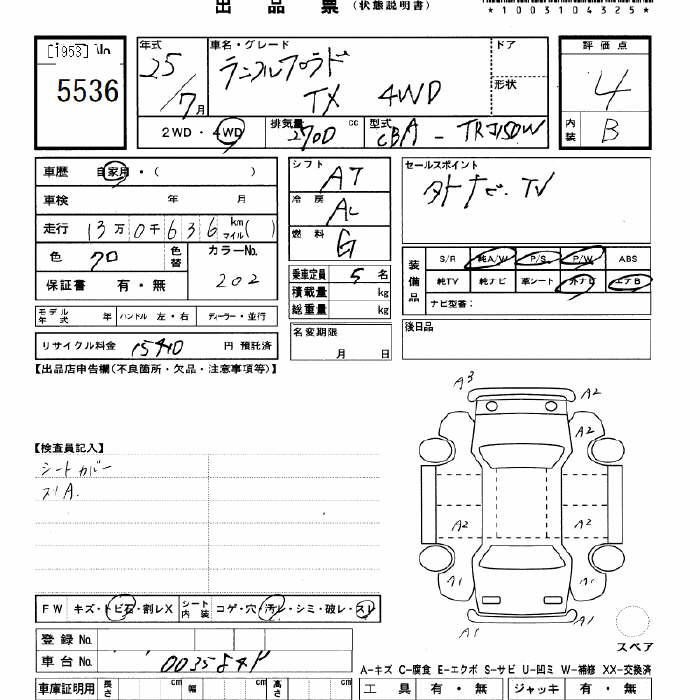 出品票(状態説明書)
*1003104325*
[1953] No
5536
年式
25/7月
車名・グレード
ランクルプラド
TX 4WD
ドア
形状
評価点
4
内装
B
2WD・4WD
排気量 2700 cc
型式 CBA-TRJ150W
車歴 自家用・( )
車検 年 月
走行 13万0千636 km マイル( )
色 クロ 色替
カラーNo. 202
保証書 有・無
シフト AT
冷房 AC
燃料 G
乗車定員 5 名
積載量 kg
総重量 kg
セールスポイント
外ナビ、TV
装備品
S/R 純A/W P/S P/W ABS
純TV 純ナビ 革シート 外ナビ エアB
ナビ型番:
モデル年式 年 ハンドル 左・右 ディーラー・並行
名変期限 月 日
後日品
リサイクル料金 15410 円 預託済
【出品店申告欄(不良箇所・欠品・注意事項等)】
A3
A2
A2
【検査員記入】
シートカバー
スリA.
A2
A2
A1
A1
A1
A1
スペア
FW キズ・トビ石・割レX シート内装 コゲ・穴・汚レ・シミ・破レ・スレ
登録No.
車台No. 0035844
A-キズ C-腐食 E-エクボ S-サビ U-凹ミ W-補修 XX-交換済
車庫証明用 長さ cm 幅 cm 高さ cm
工具 有・無 ジャッキ 有・無